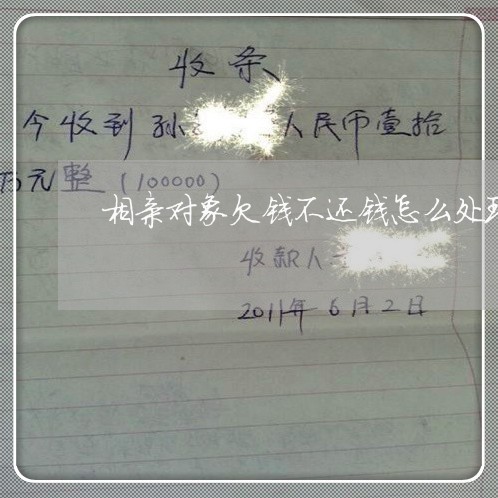 收条
今收到孙 人民币壹拾
万元整(100000)
相亲对象欠钱不还钱怎么处理
收款人
2011年6月2日